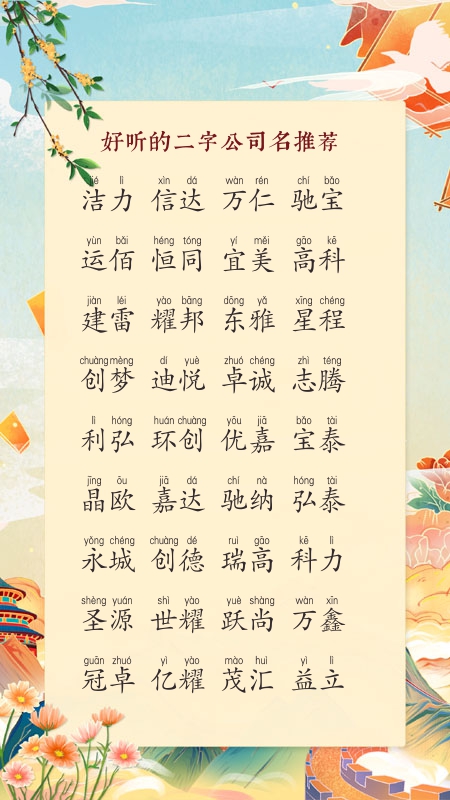 好听的二字公司名推荐
jié lì xìn dá wàn rén chí bǎo
洁力 信达 万仁 驰宝
yùn bǎi héng tóng yí měi gāo kē
运佰 恒同 宜美 高科
jiàn léi yào bāng dōng yǎ xīng chéng
建雷 耀邦 东雅 星程
chuàng mèng dí yuè zhuó chéng zhì téng
创梦 迪悦 卓诚 志腾
lì hóng huán chuàng yōu jiā bǎo tài
利弘 环创 优嘉 宝泰
jīng ōu jiā dá chí nà hóng tài
晶欧 嘉达 驰纳 弘泰
yǒng chéng chuàng dé ruì gāo kē lì
永城 创德 瑞高 科力
shèng yuán shì yào yuè shàng wàn xīn
圣源 世耀 跃尚 万鑫
guān zhuó yì yào mào huì yì lì
冠卓 亿耀 茂汇 益立